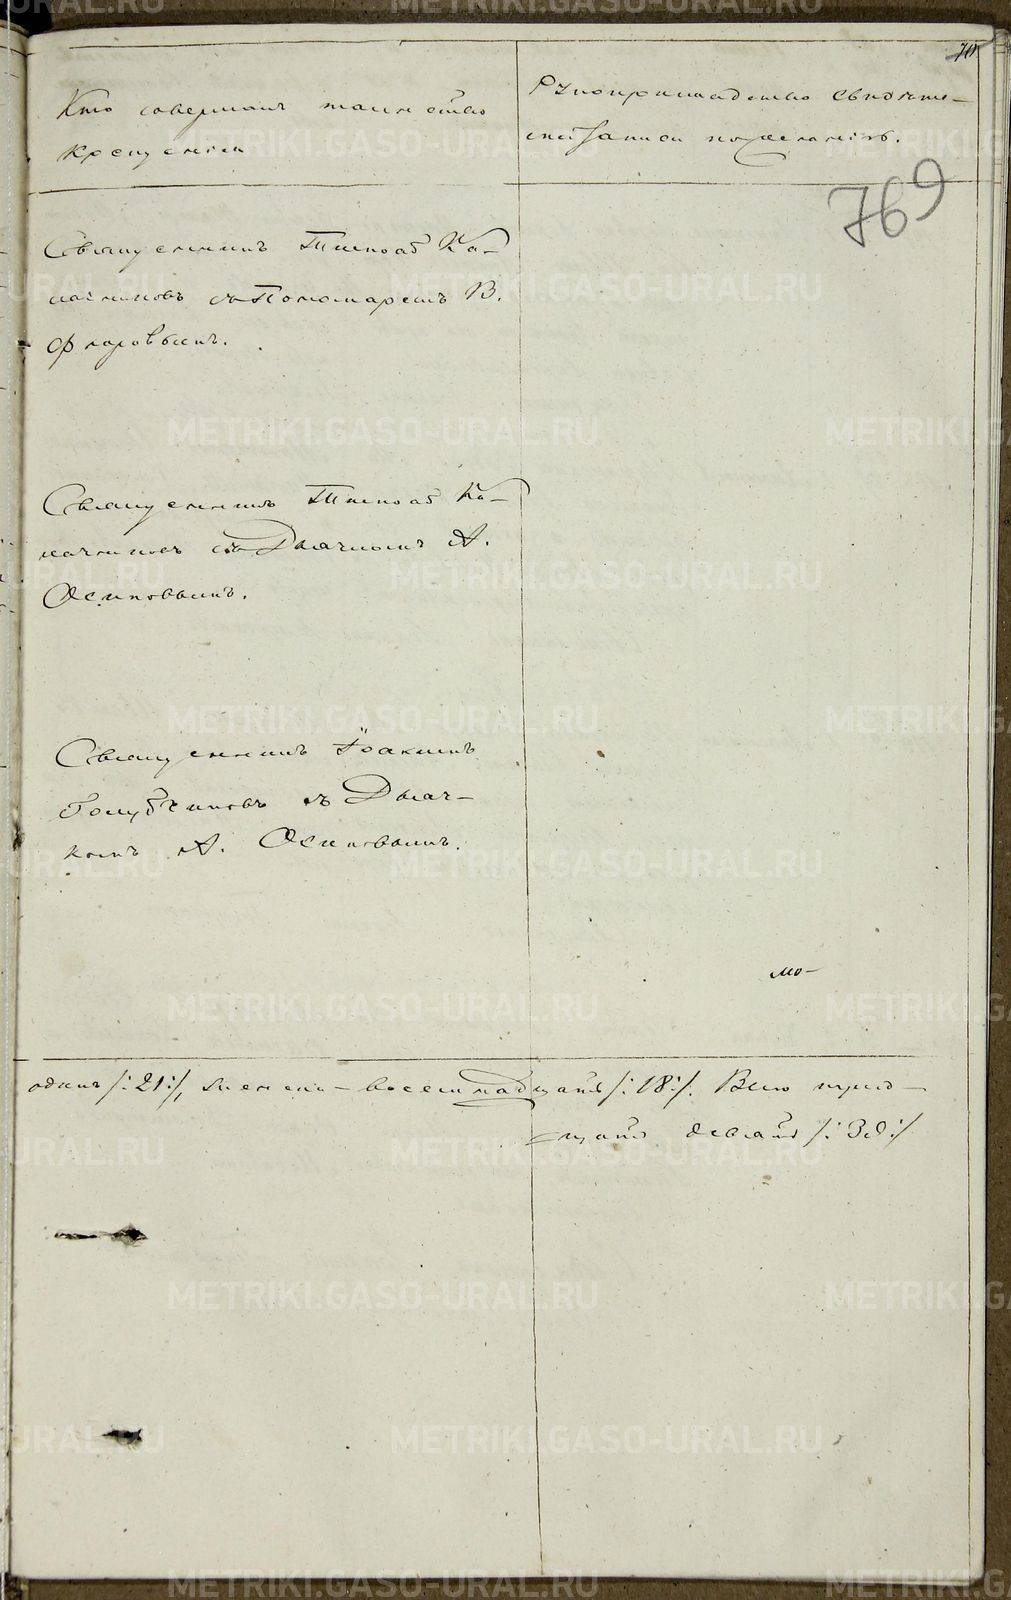 70
Кто совершалъ таинство
крещенiя
Рукоприкладство свидѣте-
лей записи по желанiю.
769
Священникъ Тимофей Ка-
лачниковъ съ Пономаремъ В.
Флоровымъ.
Священникъ Тимофей Ка-
лачниковъ съ Дьячкомъ А.
Осиповымъ.
Священникъ Iоакимъ
Голубчиковъ съ Дьяч-
комъ А. Осиповымъ.
мо-
одинъ /:21:/, женска - восемнадцать /:18:/. Всѣхъ трид-
цать девять /:39:/
METRIKI.GASO-URAL.RU